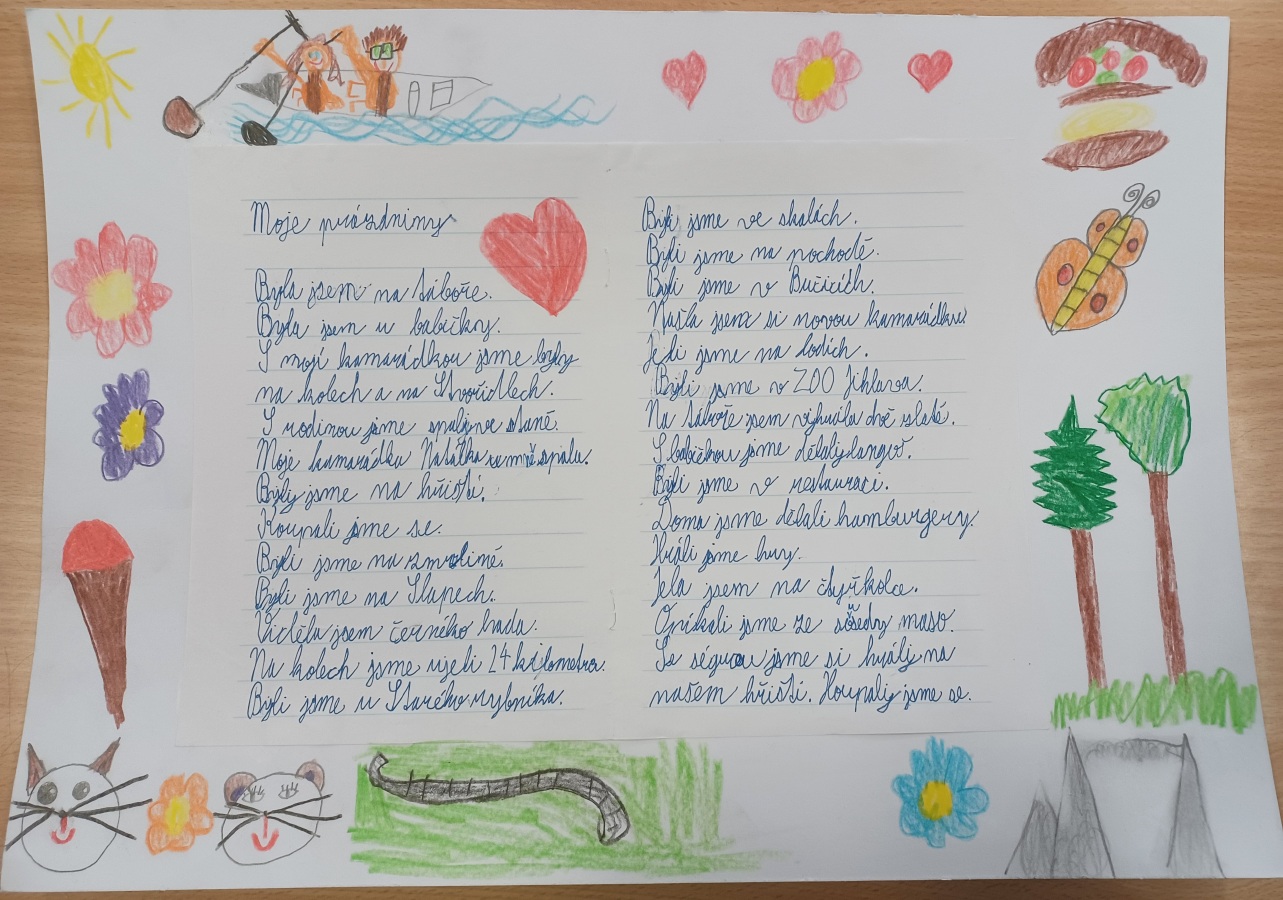 Moje prázdniny
Byla jsem na táboře.
Byla jsem u babičky.
S mojí kamarádkou jsme byly
na kolech a na Stvořidlech.
S rodinou jsme spaly ve stané.
Moje kamarádka Natálka u mně spala.
Byly jsme na hřišti.
Koupali jsme se.
Byli jsme na zmrzlině.
Byli jsme na Slapech.
Viděla jsem černého hada.
Na kolech jsme ujeli 24 kilometru.
Byli jsme u Starého rybníka.
Byli jsme ve skalách.
Byli jsme na pochodě.
Byli jsme v
Našla jsem si novou kamarádku.
Jeli jsme na lodích.
Byli jsme v ZOO Jihlava.
Na táboře jsem vyhrála dvě zlaté.
S babičkou jsme dělaly langoš.
Byli jsme v restauraci.
Doma jsme dělali hamburgery.
Hráli jsme hry.
Jela jsem na čtyřkolce.
Opékali jsme ze maso.
Se ségrou jsme si hrály na
našem hřišti. Houpaly jsme se.